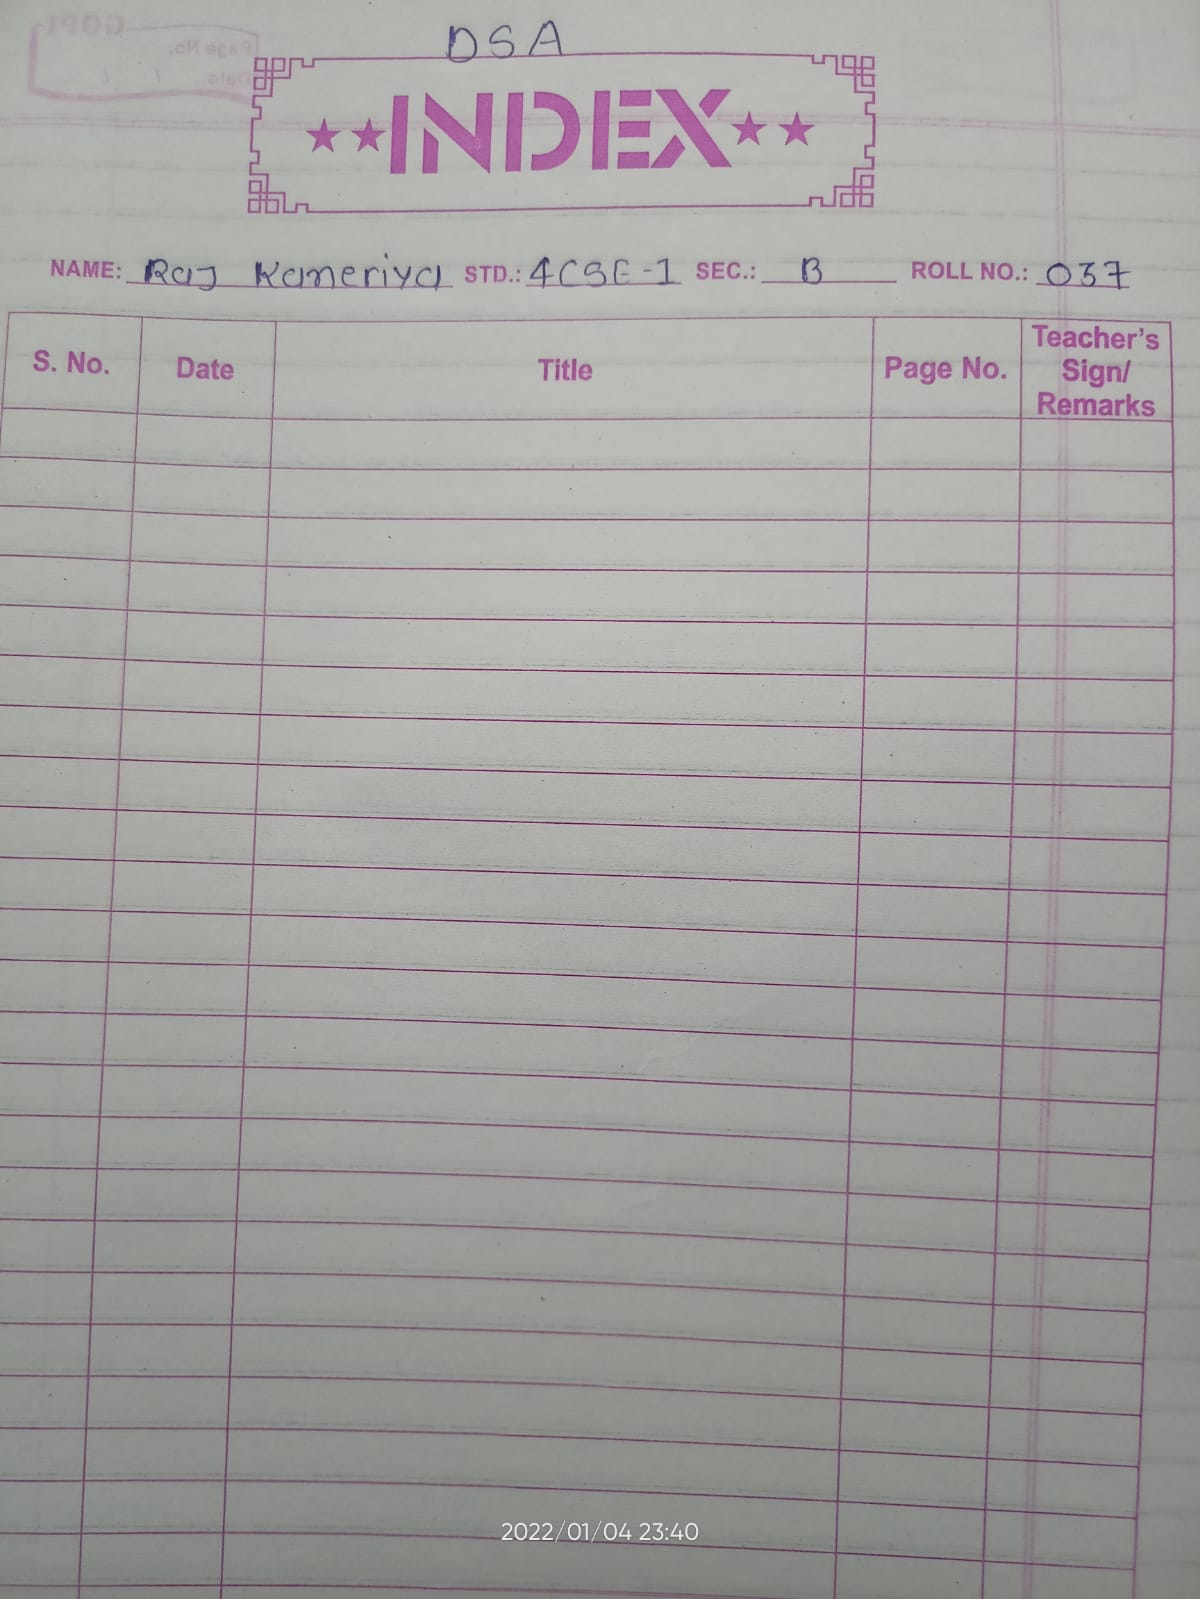 DSA
INDEX
NAME: Raj Kameriya STD.: 4CSE-1 SEC.: B ROLL NO.: 037
S. No. Date Title Page No. Teacher's Sign/ Remarks
2022/01/04 23:40